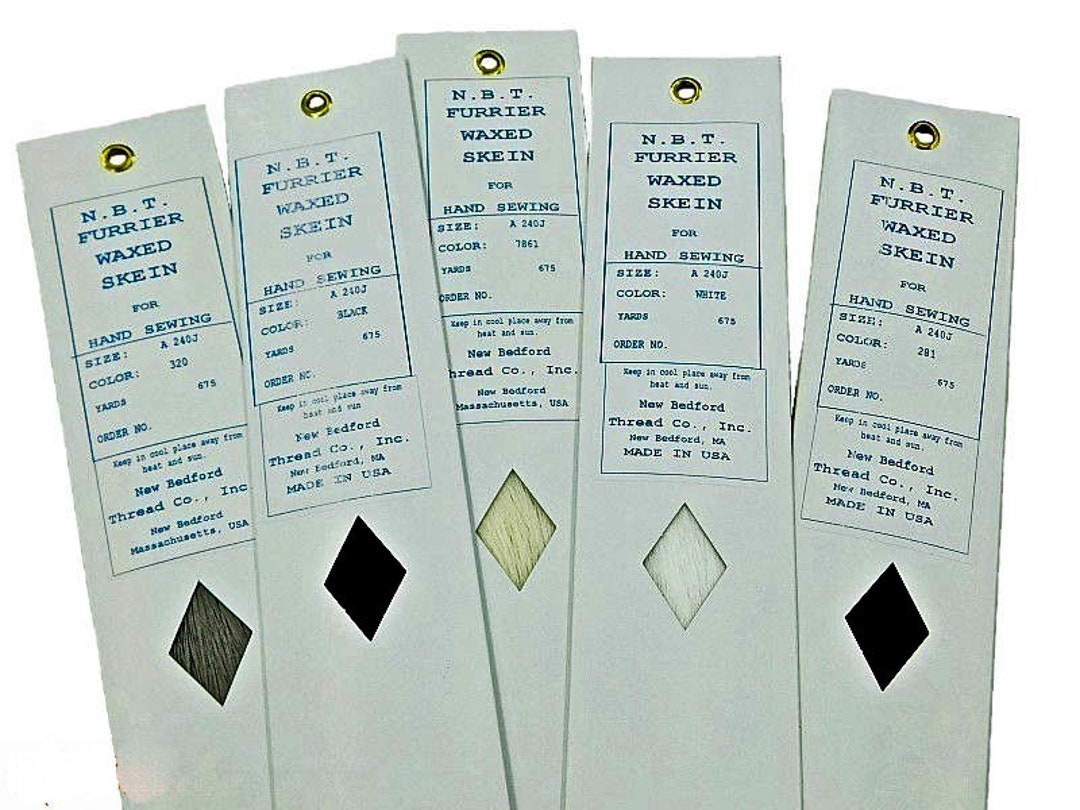 N.B.T.
FURRIER
WAXED
SKEIN
FOR
HAND SEWING
SIZE: A 240J
COLOR: 320
YARDS 675
ORDER NO.
Keep in cool place away from
heat and sun.
New Bedford
Thread Co., Inc
New Bedford
Massachusetts, USA
N.B.T.
FURRIER
WAXED
SKEIN
FOR
HAND SEWING
SIZE: A 240J
COLOR: BLACK
YARDS 675
ORDER NO.
Keep in cool place away from
heat and sun
New Bedford
Thread Co., Inc.
New Bedford, MA
MADE IN USA
N.B.T.
FURRIER
WAXED
SKEIN
FOR
HAND SEWING
SIZE: A 240J
COLOR: 7861
YARDS 675
ORDER NO.
Keep in cool place away from
heat and sun.
New Bedford
hread Co., Inc.
New Bedford
Massachusetts, USA
N.B.T.
FURRIER
WAXED
SKEIN
FOR
HAND SEWING
SIZE: A 240J
COLOR: WHITE
YARDS 675
ORDER NO.
Keep in cool place away from
heat and sun.
New Bedford
Thread Co., Inc.
New Bedford, MA
MADE IN USA
N.B.T.
FURRIER
WAXED
SKEIN
FOR
HAND SEWING
SIZE: A 240J
COLOR: 281
YARDS 675
ORDER NO.
Keep in cool place away from
heat and sun.
New Bedford
Thread Co., Inc.
New Bedford, MA
MADE IN USA